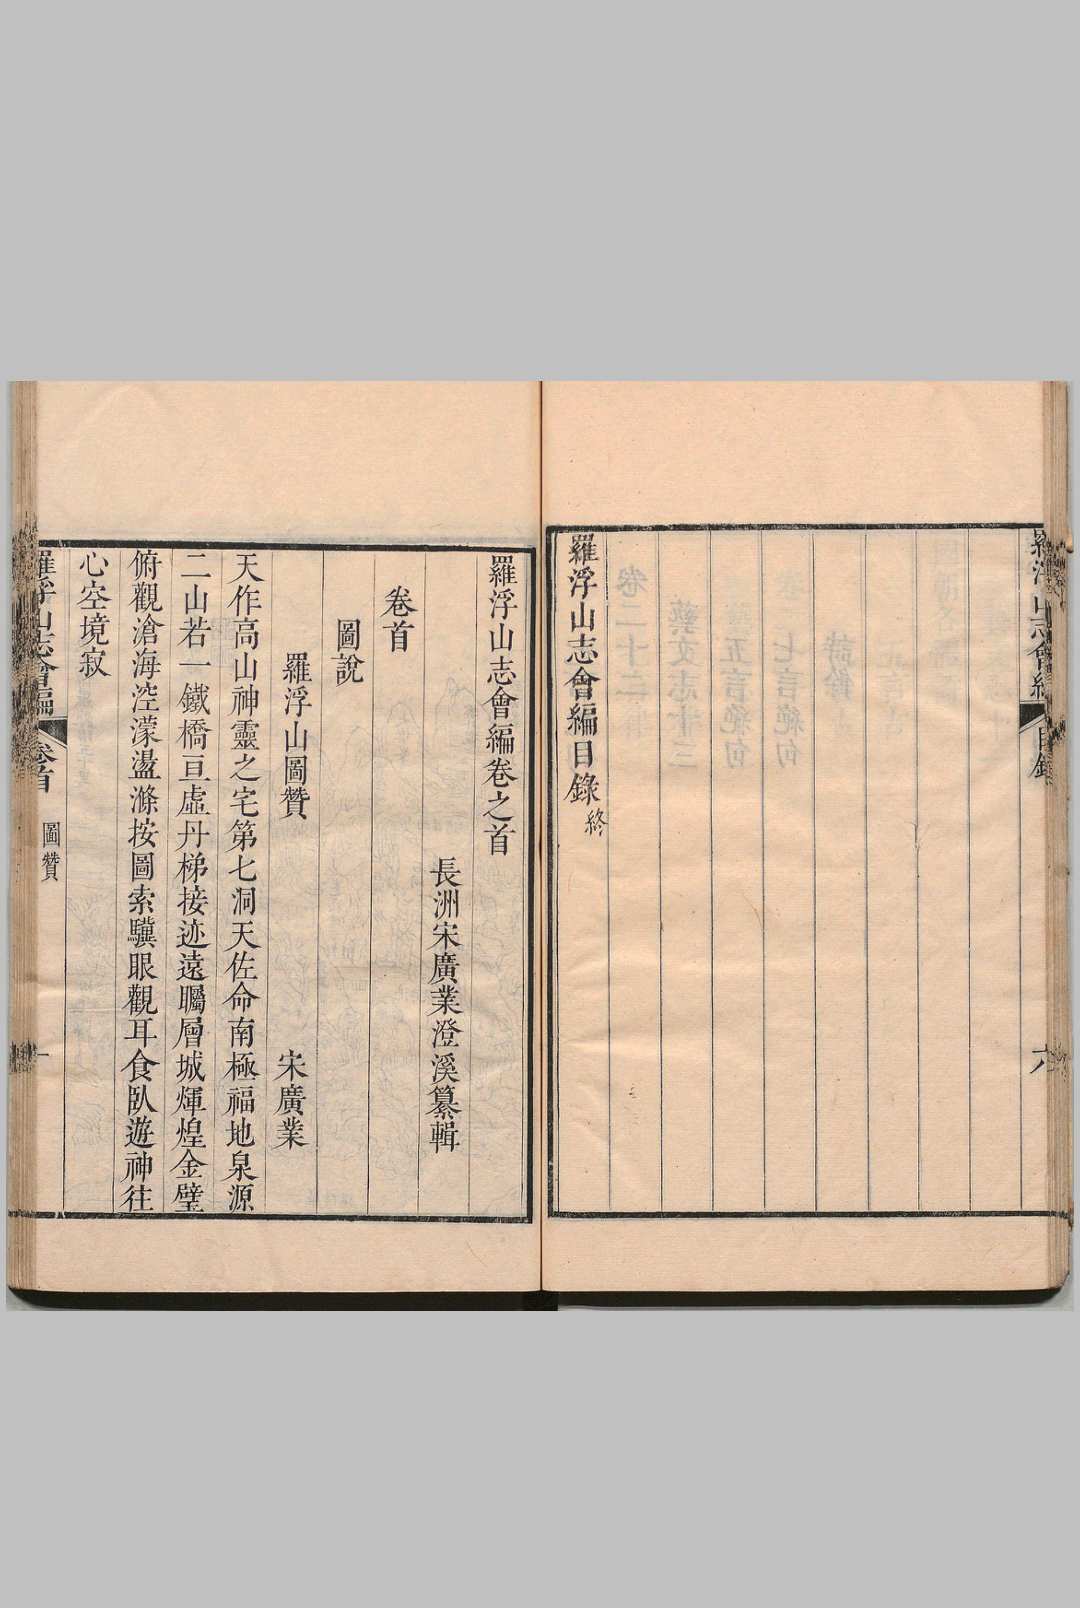 羅浮山志會編
目錄
六
羅浮山志會編目錄終
羅浮山志會編卷之首
長洲宋廣業澄溪纂輯
卷首
圖說
羅浮山圖贊
宋廣業
天作高山神靈之宅第七洞天佐命南極福地泉源
二山若一鐵橋亘虛丹梯接迹遠矚層城煇煌金璧
俯觀滄海涳濛盪滌按圖索驥眼觀耳食臥遊神往
心空境寂
羅浮山志會編
卷首
圖贊
一